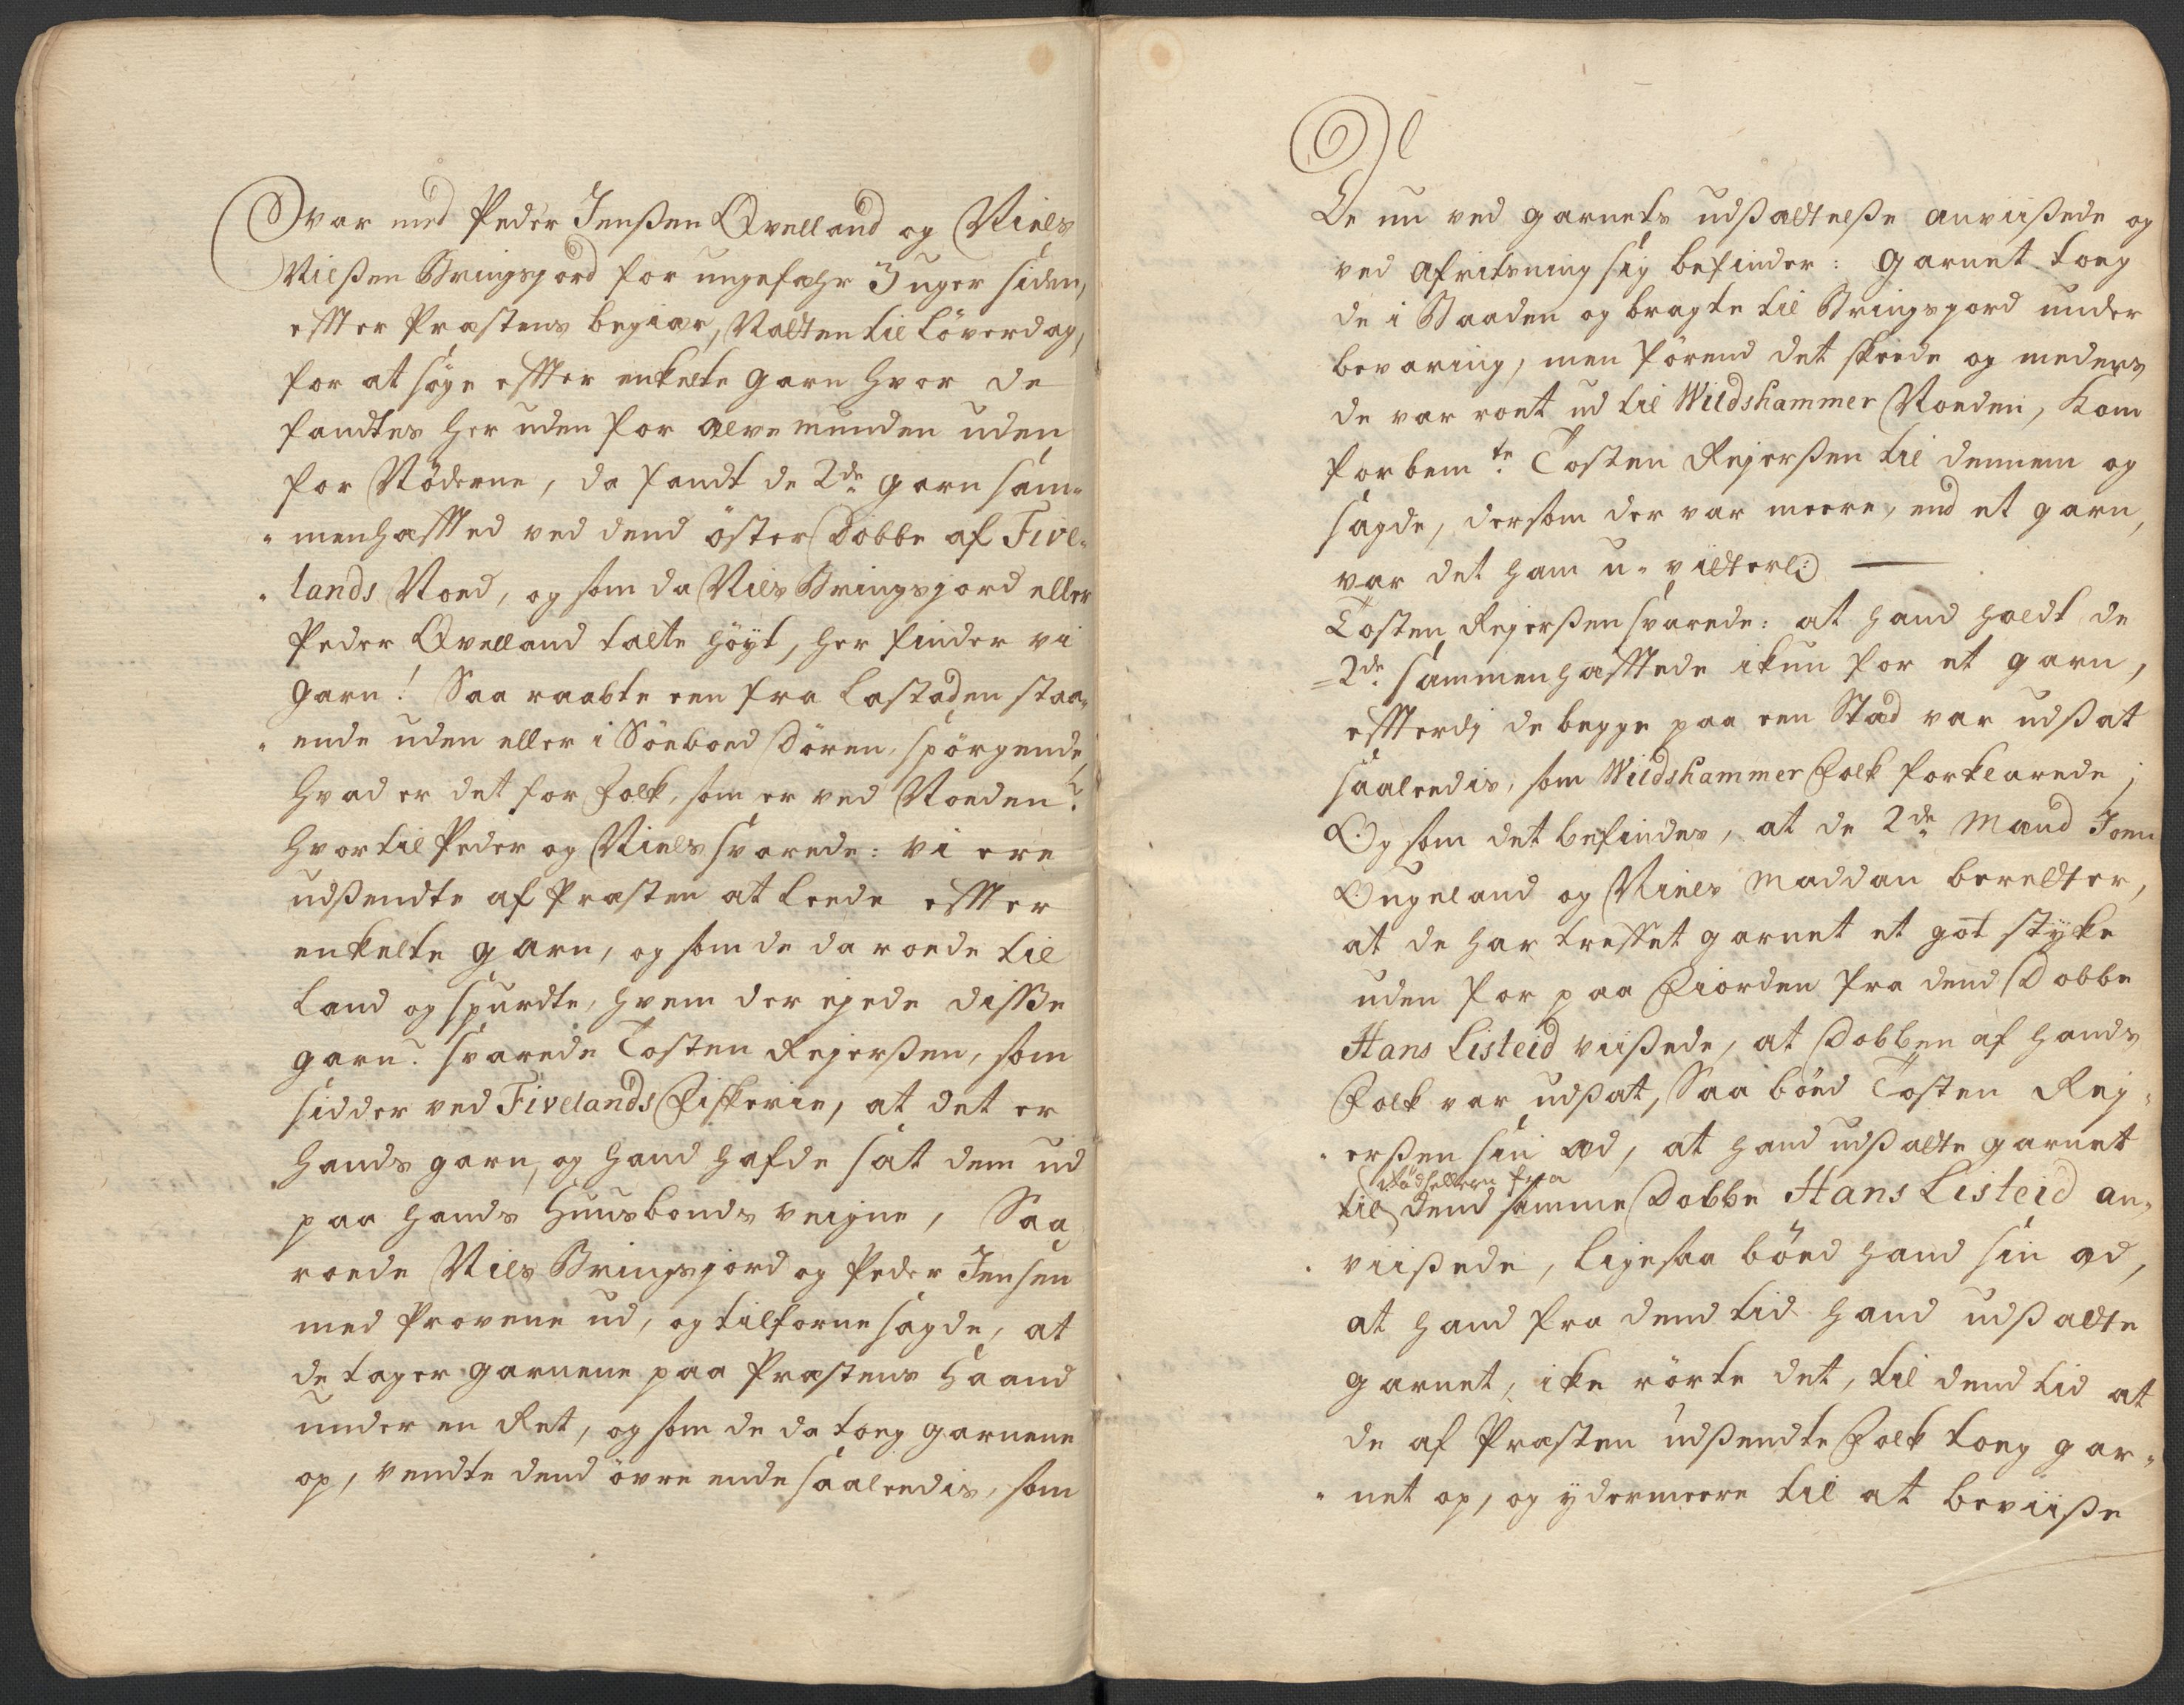 var med Peder Jenßen Qvelland og Niels
Nilßen Bringsjord for ungefæhr 3 uger siden,
effter Præstens begiær, Natten til Löverdag,
for at søge effter enkelte garn hvor de
fandtes her uden for Elvemunden uden
for Nøderne, da fandt de 2de garn sam-
menhefftned ved dend öster Dobbe af Five-
lands Noed, og som da Niels Bringsjord eller
Peder Qvelland talte höyt, her finder vi
garn! Saa raabte een fra Lastaden staa-
ende uden eller i Söeboed Dören, spörgende,
hvad er det for Folk, som er ved Noeden?
hvortil Peder og Niels svarede: vi ere
udßendte af Præsten at leede effter
enkelte garn, og som de da roede til
Land og spurdte, hvem der ejede disße
garn? svarede Tosten Rejerßen, som
sidder ved Fivelands Fiskerie, at det er
hands garn, og hand hafde sat dem ud
paa hands Huusbonds veigne, Saa
roede Niels Bringsjord og Peder Jensen
med Provene ud, og tilforne sagde, at
de tager garnene paa Præstens Haand
under en Ret, og som de da toeg garnene
op, vendte dend övre ende saaleedis, som
De nu ved garnets udßættelße anviißede og
ved afritsning sig befinder: garnet toeg
de i Baaden og bragte til Bringsjord under
bevaring, men förend det skeede og medens
de var roet ud til Wildshammer Noeden, kom
forbemte. Tosten Rejerßen til dennem og
sagde, dersom der var meere, end et garn,
var det ham u-vitterl:
Tosten Rejerßen svarede: at hand holdt de
2de sammenhefftede ikun for et garn,
effterdj de begge paa een Stæd var udßat
saaleedis, som Wildshammer Folk forklarede;
Og som det befindes, at de 2de Mænd Joen
Ougeland og Niels Maddan beretter,
at de har treffet garnet et got stÿke
uden for paa Fiorden fra dend Dobbe
Hans Listeid viißede, at Dobben af hands
Folk var udßat, Saa böed Tosten Rej-
erßen sin æd, at hand udßatte garnet
til dend samme Dobbe Hans Listeid an-
viißede, ligesaa böed hand sin æd,
at hand fra dend tid hand udßatte
garnet, ike rörte det, til dend tid at
de af Præsten udßendte Folk toeg gar-
net op, og ÿdermeere til at beviiße